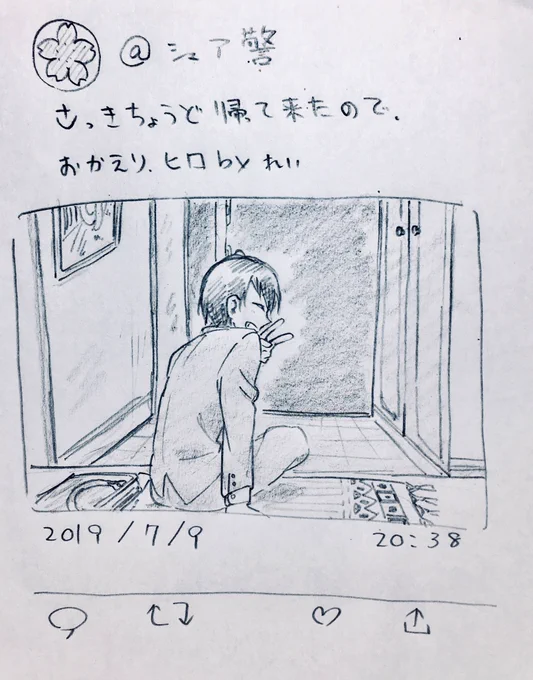 @シェア警
さっきちょうど帰て来たので、
おかえり、ヒロ by れい
2019/7/9
20:38